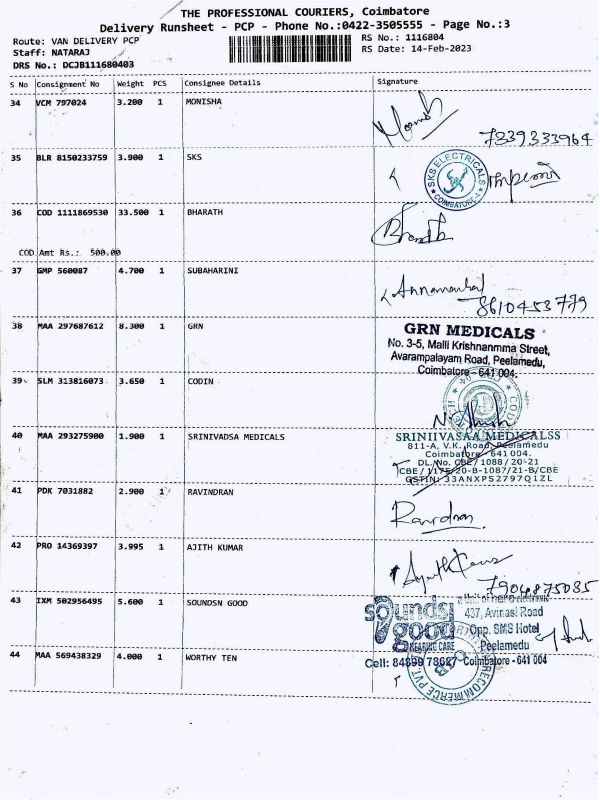 THE PROFESSIONAL COURIERS, Coimbatore
Delivery Runsheet - PCP - Phone No.:0422-3505555 - Page No.:3
Route: VAN DELIVERY PCP
RS No.: 1116804
Staff: NATARAJ
RS Date: 14-Feb-2023
DRS No.: DCJB111680403
S No Consignment No Weight PCS Consignee Details Signature
34 VCM 797024 3.200 1 MONISHA
7339333964
35 BLR 8150233759 3.900 1 SKS
SKS ELECTRICALS
COIMBATORE
36 COD 1111869530 33.500 1 BHARATH
Bharath
COD Amt Rs.: 500.00
37 GMP 560087 4.700 1 SUBAHARINI
8610453779
38 MAA 297687612 8.300 1 GRN
GRN MEDICALS
No. 3-5, Malli Krishnanmma Street,
Avarampalayam Road, Peelamedu,
Coimbatore - 641 004.
39 SLM 313816073 3.650 1 CODIN
40 MAA 293275900 1.900 1 SRINIVADSA MEDICALS
SRINIIVASAA MEDICALSS
811-A, V.K. Road, Peelamedu
Coimbatore - 641 004.
DL/No. CBE/1088/20-21
CBE/1175/20-B-1087/21-B/CBE
GSTIN: 33ANXPS2797Q1ZL
41 PDK 7031882 2.900 1 RAVINDRAN
42 PRO 14369397 3.995 1 AJITH KUMAR
7904875085
43 IXM 502956495 5.600 1 SOUNDSN GOOD
sounds good
HEARING CARE
437, Avinasi Road
Opp. SMS Hotel
Peelamedu
Cell: 84899 78627 Coimbatore - 641 004
44 MAA 569438329 4.000 1 WORTHY TEN